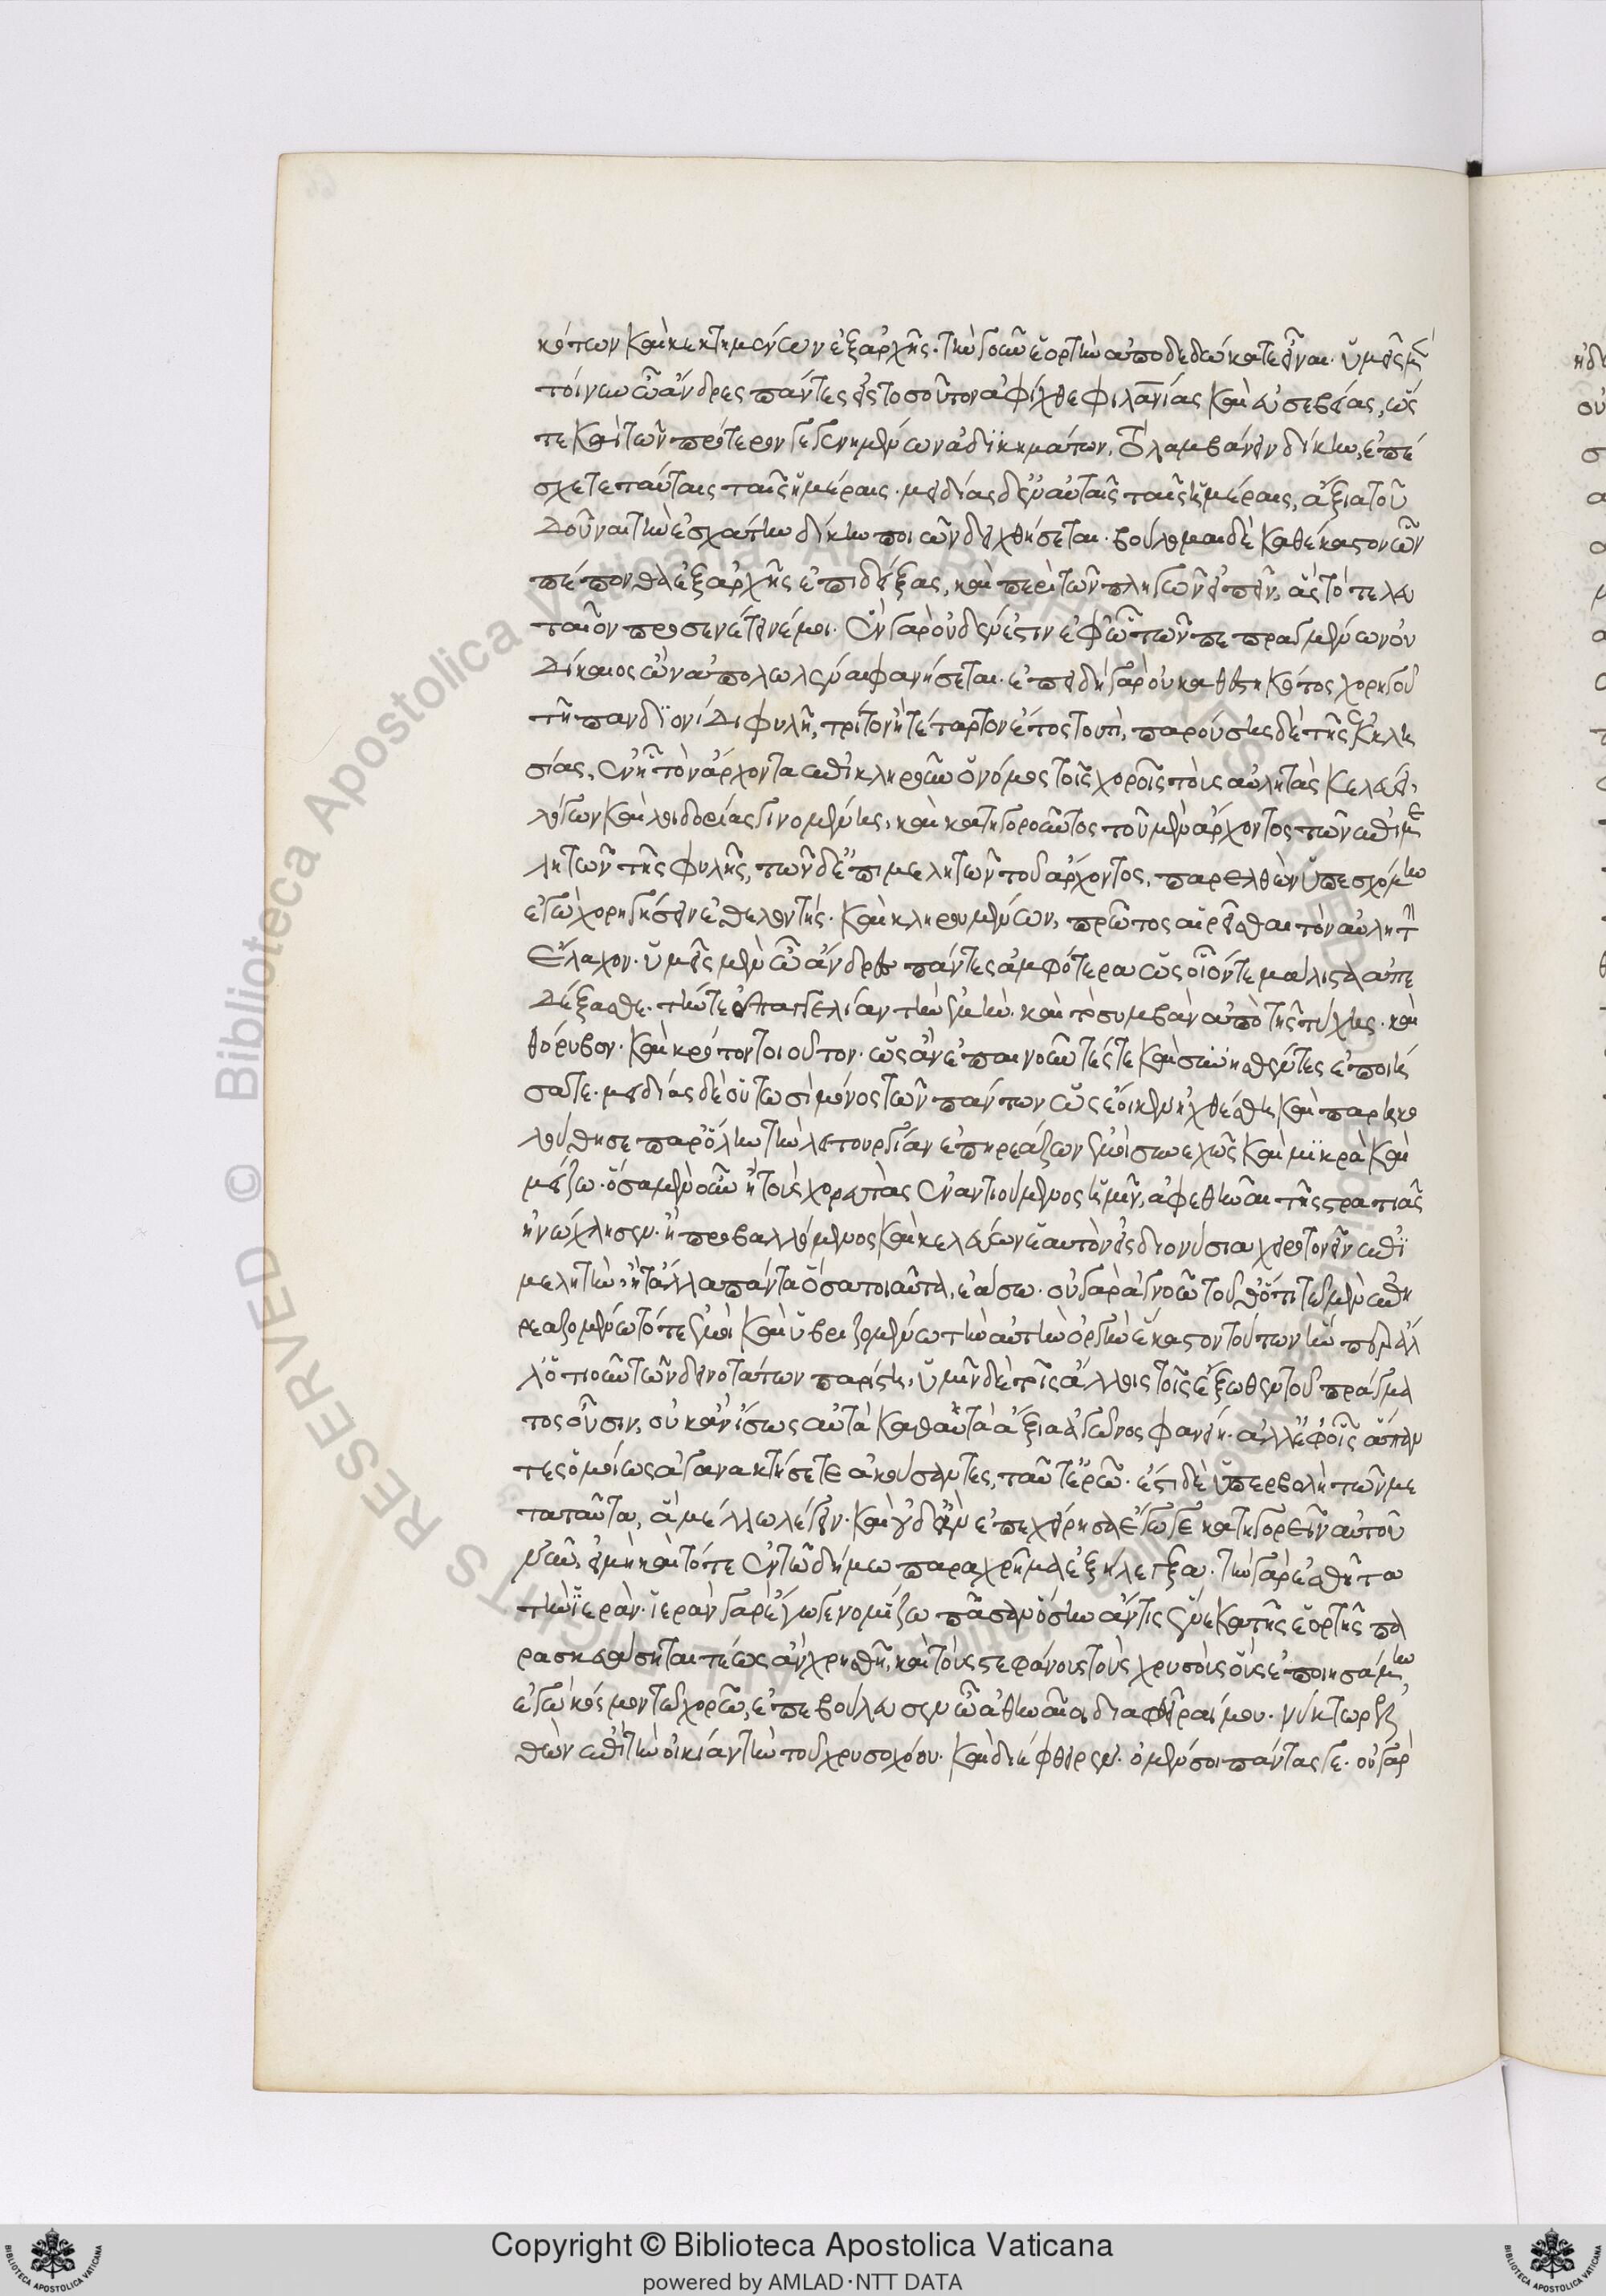 κότων καὶ κεκτημένων ἐξαρχῆς. τὴν γοῦν ἑορτὴν ἀποδεδώκατε εἶναι. ὑμεῖς μὲν
τοίνυν ὦ ἄνδρες πάντες εἰς τοσοῦτον ἀφίχθε φιλανίας καὶ εὐσεβείας, ὥσ
τε καὶ τῶν πρότερον γεγενημένων ἀδϊκημάτων, τὸ λαμβάνειν δίκην, ἐπέ
σχετε ταύταις ταῖς ἡμέραις. μειδίας δ' ἐν αὐταῖς ταῖς ἡμέραις, ἄξια τοῦ
δοῦναι τὴν ἐσχάτην δίκην ποιῶν δειχθήσεται. βούλομαι δὲ καθέκαστον ὧν
πέπονθα ἐξαρχῆς ἐπιδείξας, καὶ περὶ τῶν πληγῶν εἰπεῖν, ἃς τὸ τελευ
ταῖον προσενέτεινέ μοι. ἓν γὰρ οὐδέν ἐστιν ἐφ' ᾧ τῶν πεπραγμένων οὐ
δίκαιος ὢν ἀπολωλέναι φανήσεται. ἐπειδὴ γὰρ οὐ καθεστηκότος χορηγοῦ
τῆ πανδϊονίδι φυλῆ, τρίτον ἢ τέταρτον ἔτος τουτὶ, παρούσης δὲ τῆς ἐκκλη
σίας, ἐν ἧ τὸν ἄρχοντα ἐπικληροῦν ὁ νόμος τοῖς χοροῖς τοὺς αὐλητὰς κελεύει,
λόγων καὶ λοιδορίας γινομένης, καὶ κατηγοροῦντος τοῦ μὲν ἄρχοντος τῶν ἐπιμε
λητῶν τῆς φυλῆς, τῶν δ' ἐπιμελητῶν τοῦ ἄρχοντος, παρελθὼν ὑπεσχόμην
ἐγὼ χορηγήσειν ἐθελοντής. καὶ κληρουμένων, πρῶτος αἱρεῖσθαι τὸν αὐλητὴν
ἔλαχον. ὑμεῖς μὲν ὦ ἄνδρες πάντες ἀμφότερα ὡς οἷόν τε μάλιστα ἀπε
δέξασθε. τήν τε ἐπαγγελίαν τὴν ἐμὴν. καὶ τὸ συμβὰν ἀπὸ τῆς τύχης. καὶ
θόρυβον. καὶ κρότον τοιοῦτον. ὡς ἂν ἐπαινοῦντές τε καὶ συνησθέντες ἐποιή
σατε. μειδίας δὲ οὑτωσὶ μόνος τῶν πάντων ὡς ἔοικεν ἠχθέσθη καὶ παρηκο
λούθησε παρ' ὅλην τὴν λειτουργίαν ἐπηρεάζων ἐμοὶ συνεχῶς καὶ μϊκρὰ καὶ
μείζω. ὅσα μὲν οὖν ἢ τοὺς χορευτὰς ἐναντιούμενος ἡμῖν, ἀφεθῆναι τῆς στρατιᾶς
ἠνώχλησεν. ἢ προβαλλόμενος καὶ κελεύων ἑαυτὸν εἰς διονύσια χειροτονεῖν ἐπϊ
μελητὴν, ἢ τἄλλα πάντα ὅσα τοιαῦτα, ἐάσω. οὐ γὰρ ἀγνοῶ τοῦθ' ὅτι τῶ μὲν ἐπη
ρεαζομένω τότε ἐμοὶ καὶ ὑβριζομένω τὴν αὐτὴν ὀργὴν ἕκαστον τούτων ἣν περ ἂν ἄλ
λ' ὁτιοῦν τῶν δεινοτάτων παρίστη, ὑμῖν δὲ τοῖς ἄλλοις τοῖς ἔξωθεν τοῦ πράγμα
τος οὖσιν, οὐκ ἂν ἴσως αὐτὰ καθ' αὑτὰ ἄξια ἀγῶνος φανείη. ἀλλ' ἐφ' οἷς ἅπαν
τες ὁμοίως ἀγανακτήσετε ἀκούσαντες, ταῦτ' ἐρῶ. ἔστι δὲ ὑπερβολὴ τῶν με
τὰ ταῦτα, ἃ μέλλω λέγειν. καὶ οὐδ' ἂν ἐπεχείρησα ἔγωγε κατηγορεῖν αὐτοῦ
νῦν, εἰ μὴ καὶ τότε ἐν τῶ δήμω παραχρῆμα ἐξήλεγξα. τὴν γὰρ ἐσθῆτα
τὴν ἱεράν. ἱερὰν γὰρ ἔγωγε νομίζω πᾶσαν ὅσην ἄν τις ἕνεκα τῆς ἑορτῆς πα
ρασκευάσηται τέως ἂν χρησθῆ, καὶ τοὺς στεφάνους τοὺς χρυσοῦς οὓς ἐποιησάμην
ἐγὼ κόσμον τῶ χορῶ, ἐπεβούλευσεν ὦ ἀθηναῖοι διαφθεῖραί μου. νύκτωρ ἐλ
θὼν ἐπὶ τὴν οἰκίαν τὴν τοῦ χρυσοχόου. καὶ διέφθειρεν. οὐ μέντοι πάντας γε. οὐ γὰρ
Copyright © Biblioteca Apostolica Vaticana
powered by AMLAD·NTT DATA